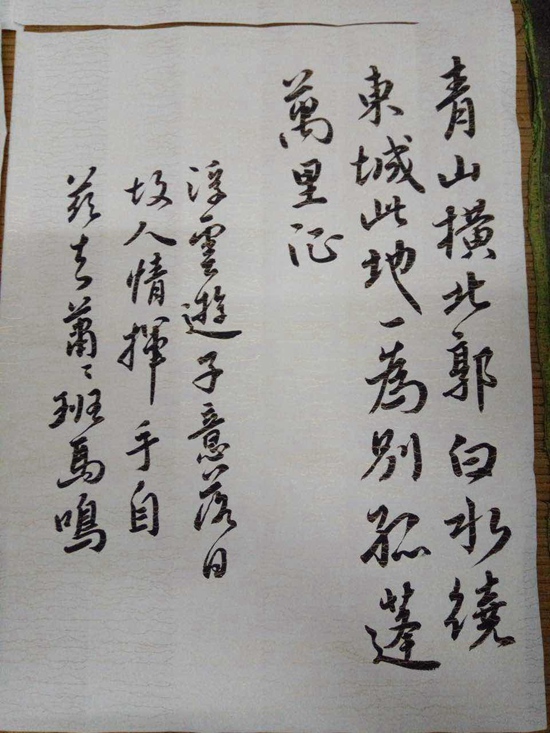 青山橫北郭白水繞
東城此地一為別孤蓬
萬里征
浮雲遊子意落日
故人情揮手自
茲去蕭〻班馬鳴